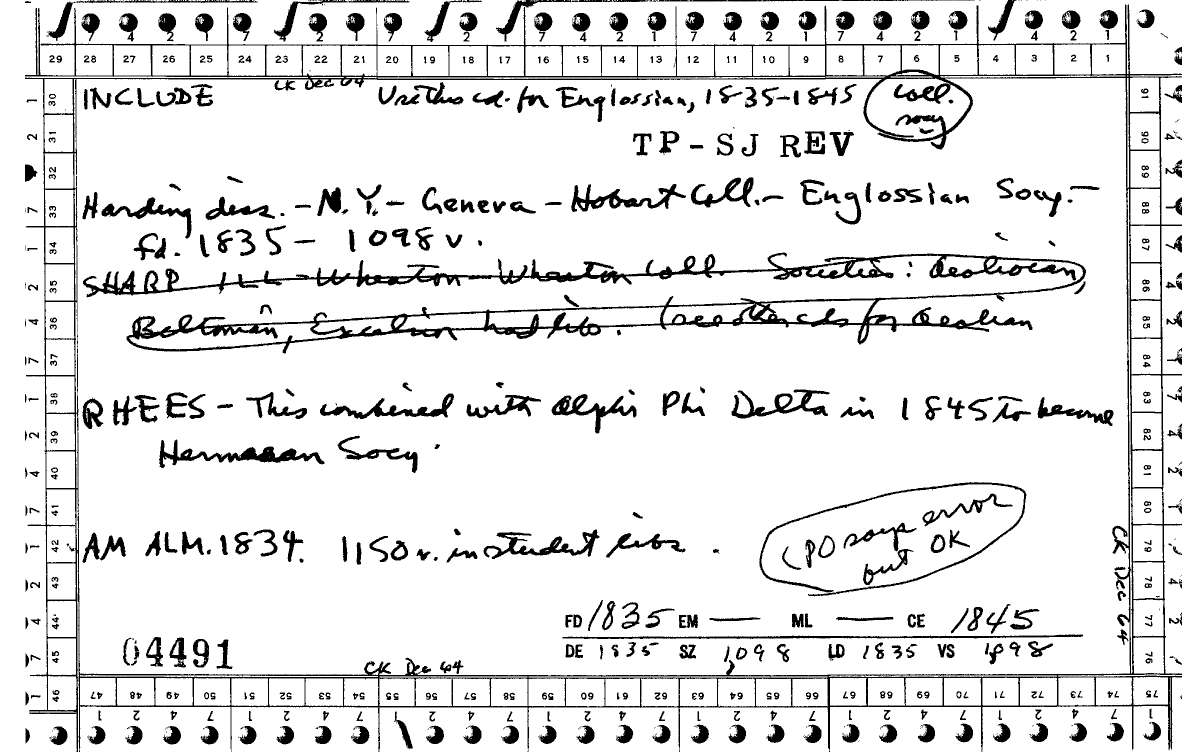 7 4 2 1 7 4 2 1 7 4 2 1 7 4 2 1 7 4 2 1 7 4 2 1 7 4 2 1
29 28 27 26 25 24 23 22 21 20 19 18 17 16 15 14 13 12 11 10 9 8 7 6 5 4 3 2 1
CK Dec 64
INCLUDE Use this cd. for Englossian, 1835-1845 Coll. socy
TP-SJ REV
Harding diss. - N.Y. - Geneva - Hobart Coll. - Englossian Socy. -
fd. 1835 - 1098 v.
SHARP ILL - Wheaton - Wheaton Coll. Societies: Aeolioian,
Beltonian, Excelsior had lib. (see other cds for Aeolian
RHEES - This combined with Alpha Phi Delta in 1845 to become
Hermaean Socy.
AM ALM. 1834. 1150 v. in student libs.
CPO says error
but OK
CK Dec 64
FD 1835 EM — ML — CE 1845
DE 1835 SZ 1,098 LD 1835 VS 1098
04491
CK Dec 64
30 31 32 33 34 35 36 37 38 39 40 41 42 43 44 45 46
91 90 89 88 87 86 85 84 83 82 81 80 79 78 77 76 75
47 48 49 50 51 52 53 54 55 56 57 58 59 60 61 62 63 64 65 66 67 68 69 70 71 72 73 74 75
1 2 4 7 1 2 4 7 1 2 4 7 1 2 4 7 1 2 4 7 1 2 4 7 1 2 4 7 1